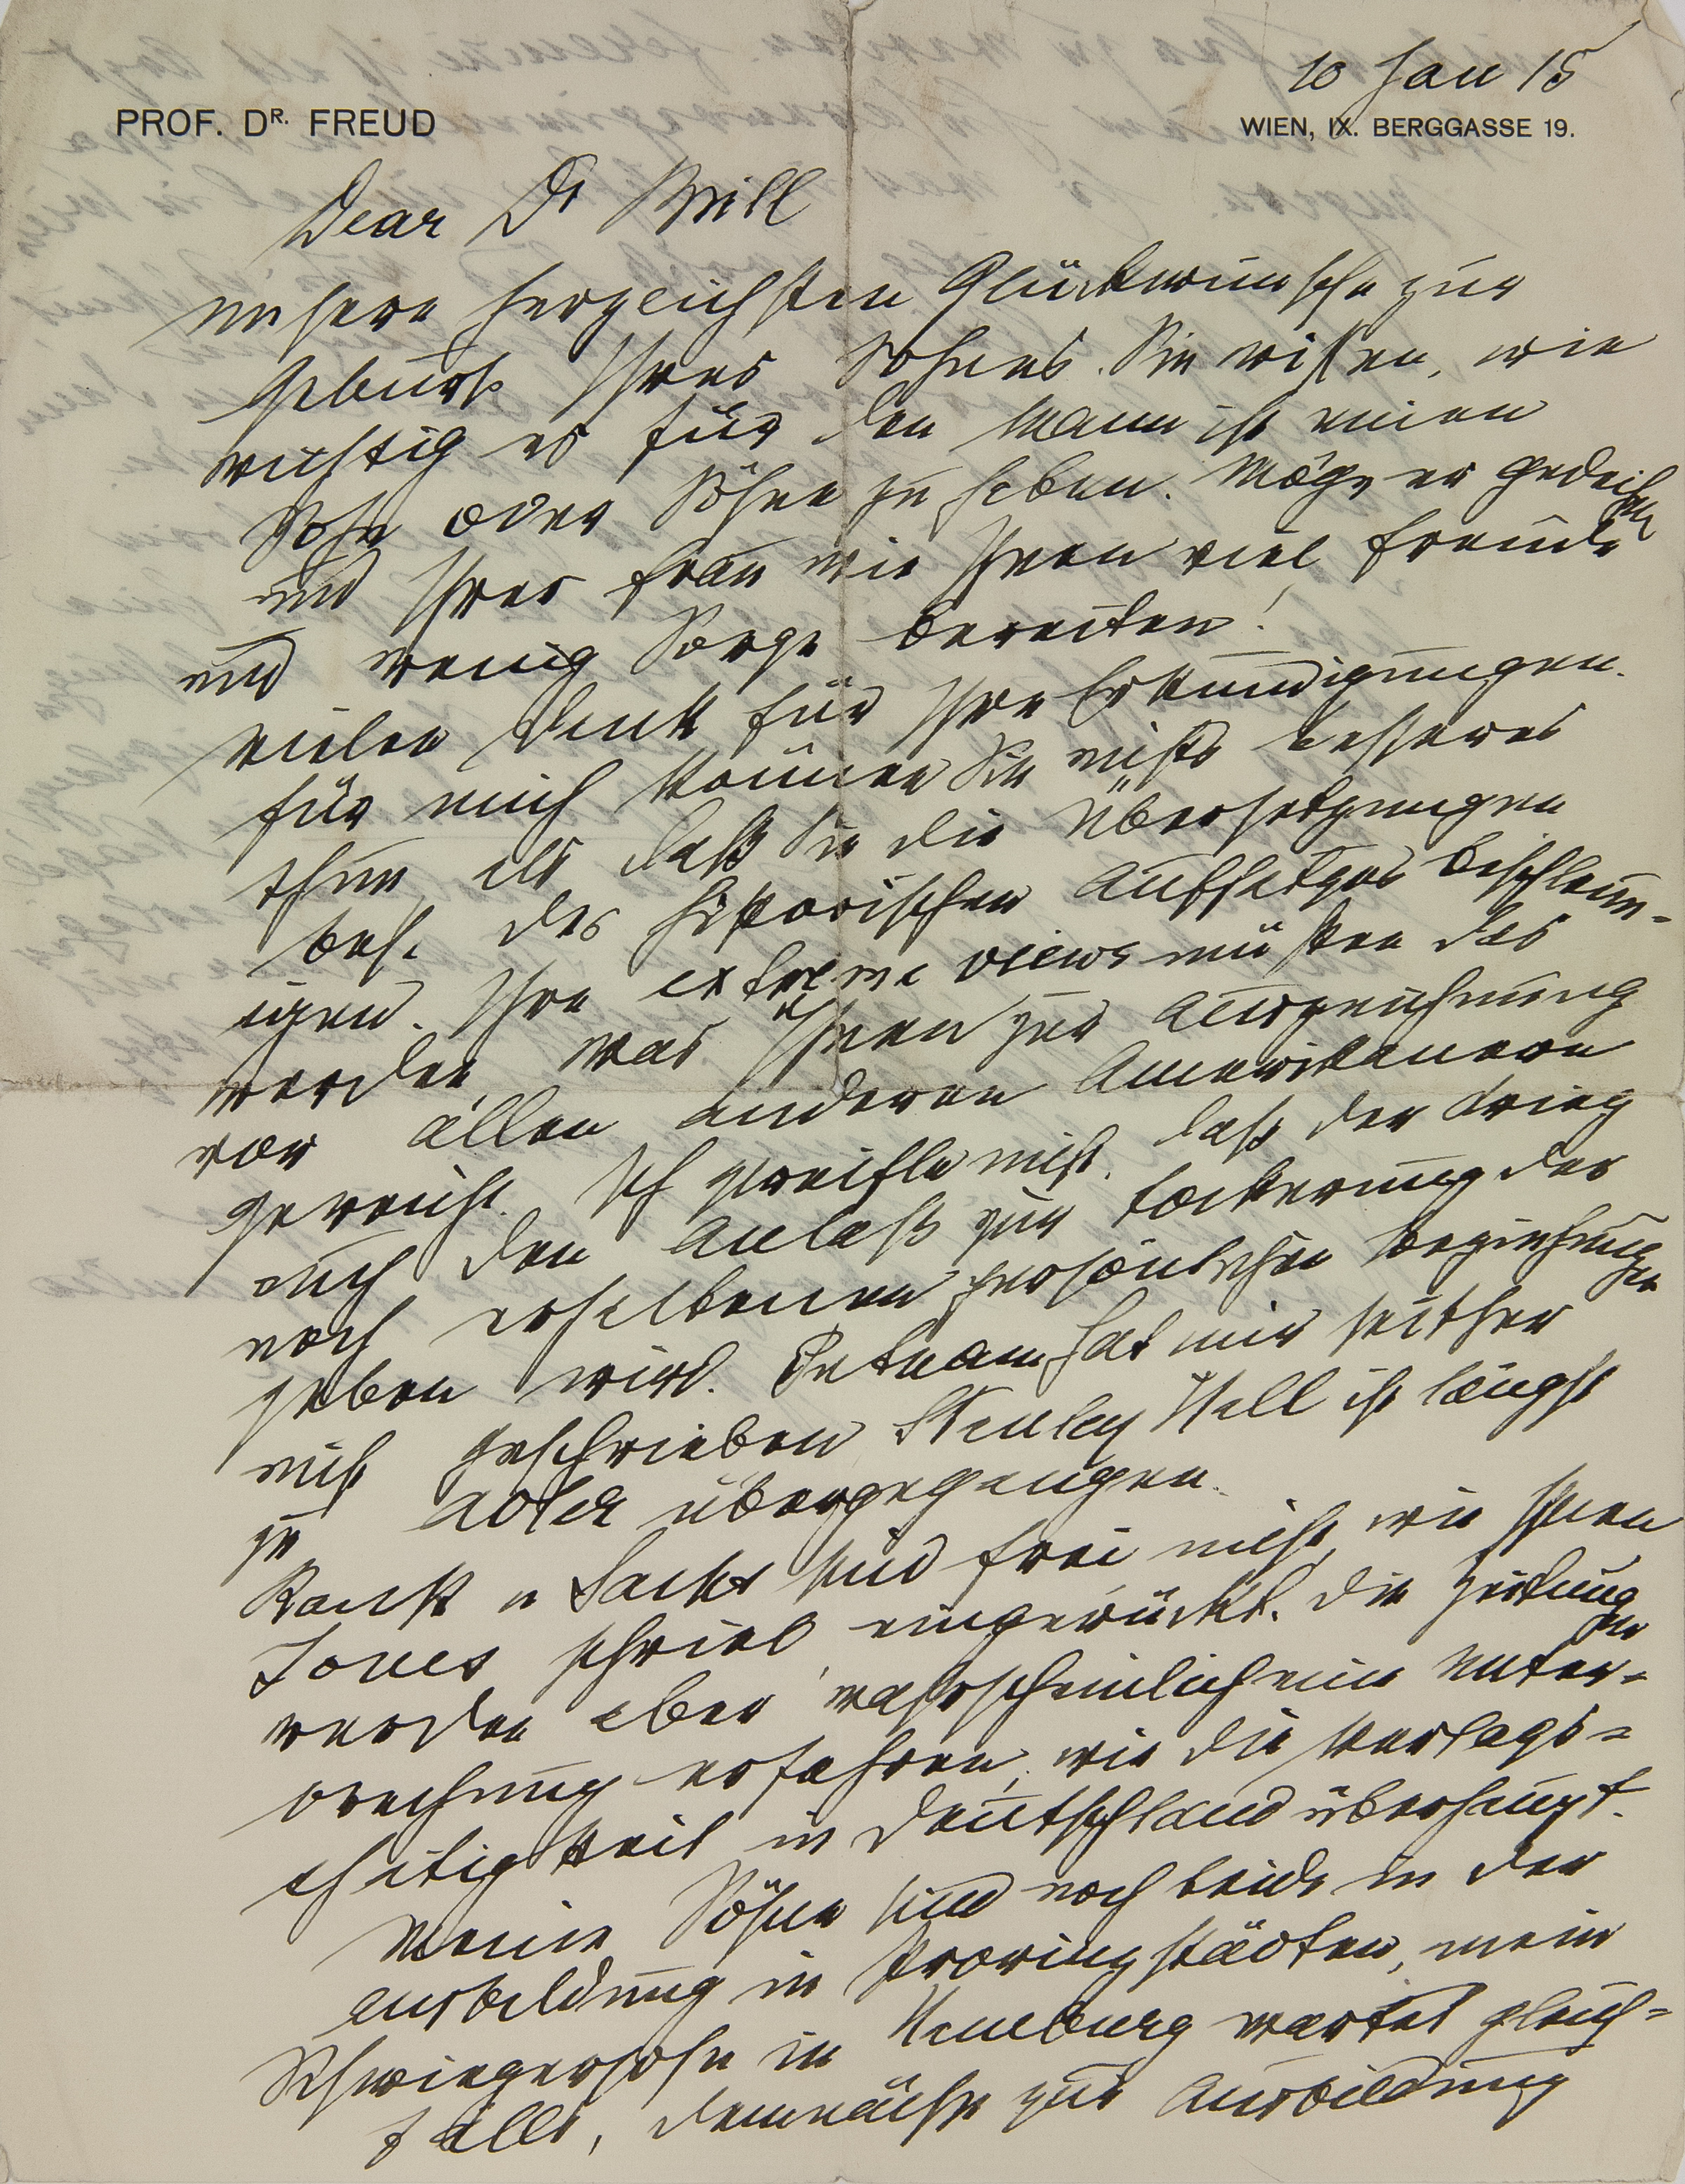 10 Jan 15
PROF. DR. FREUD
WIEN, IX. BERGGASSE 19.
Dear Dr Brill
unsere herzlichsten Glückwünsche zur
Geburt Ihres Sohnes. Sie wissen, wie
wichtig es für den Mann ist einen
Sohn oder Söhne zu haben. Möge er gedeihen
und Ihrer Frau wie Ihnen viel Freude
und wenig Sorge bereiten!
Vielen Dank für Ihre Erkundigungen.
Für mich können Sie nichts besseres
thun als daß Sie die Übersetzungen
bes. des historischen Aufsatzes beschleun-
igen. Ihre extreme views müßten das
werden was Ihnen zur Auszeichnung
vor allen anderen Amerikanern
gereicht. Ich zweifle nicht, daß der Krieg
auch den Anlaß zur Lockerung der
noch erhaltenen persönlichen Beziehungen
geben wird. Putnam hat mir seither
nicht geschrieben Stanley Hall ist längst
zu Adler übergegangen.
Rank u Sachs sind frei nicht, wie Ihnen
Jones schrieb, eingerückt. Die Zeitungen
werden aber wahrscheinlich eine Unter-
brechung erfahren, wie die Verlags-
thätigkeit in Deutschland überhaupt.
Meine Söhne sind noch beide in der
Ausbildung in Provinzstädten, mein
Schwiegersohn in Hamburg wartet gleich-
falls, demnächst zur Ausbildung